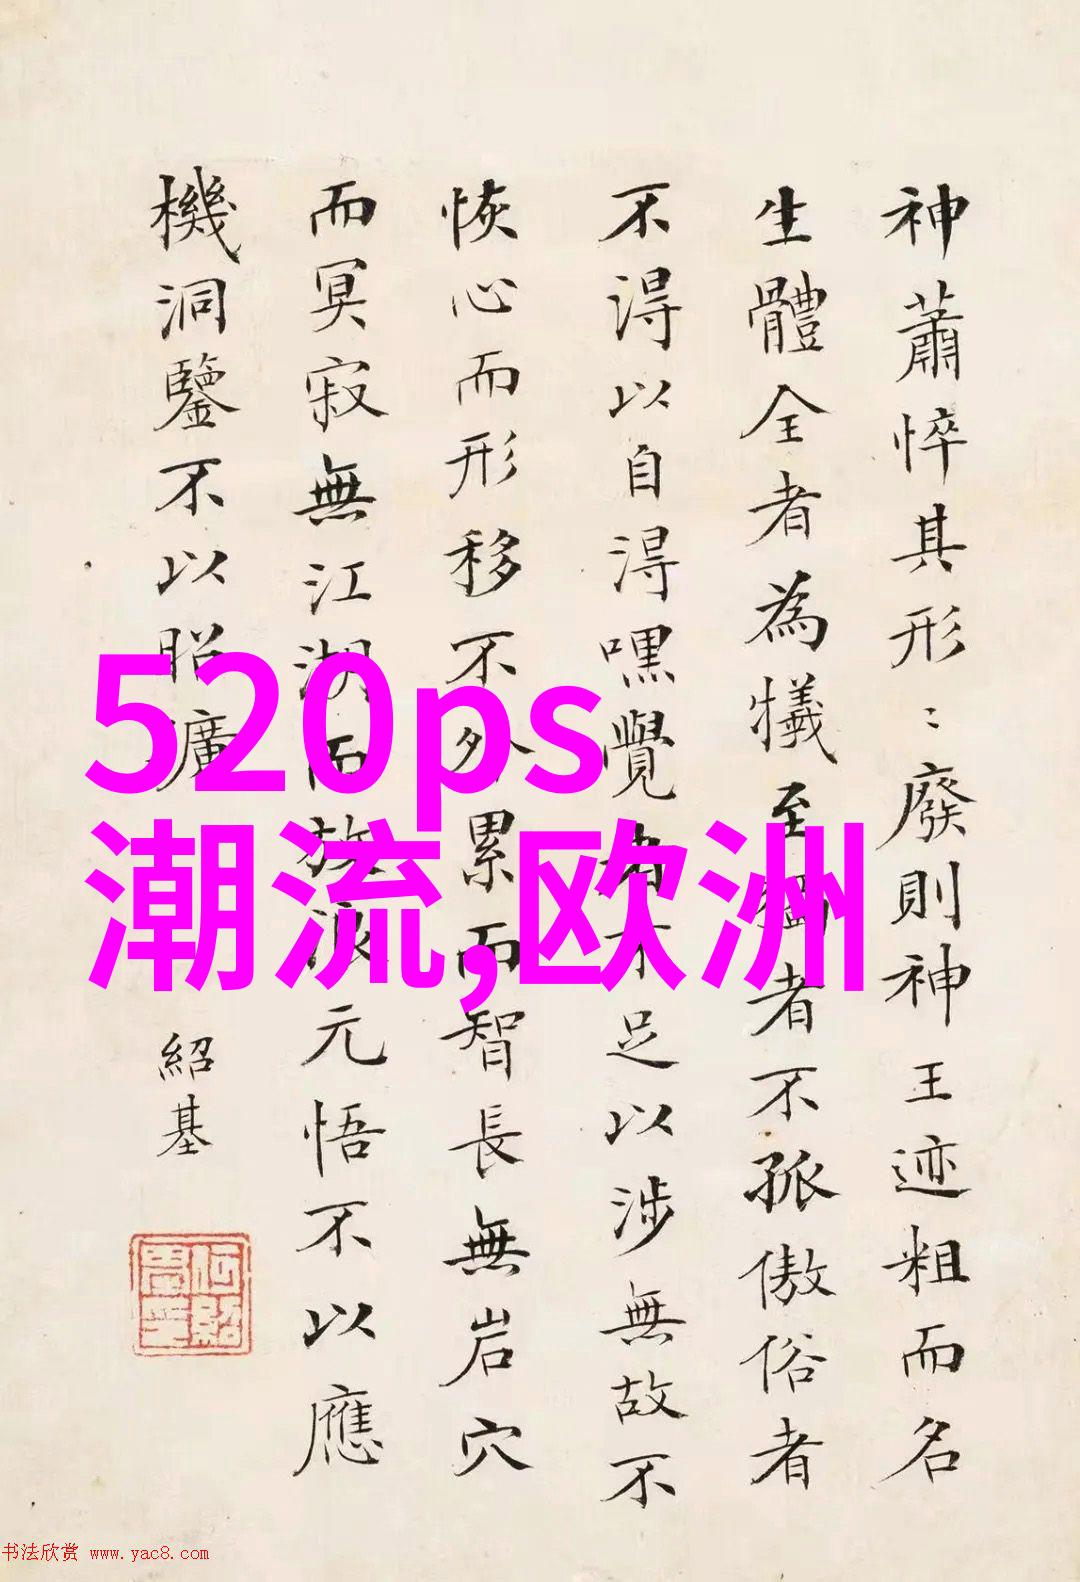 神蕭悴其形〻廢則神王迹粗而名
生體全者為犧至獨者不孤傲俗者
不得以自得嘿覺者不足以涉無故不
恢心而形移不外累而智長無岩穴
而冥寂無江湖而放浪元悟不以應
機洞鑒不以昭
紹基
520ps
潮流,欧洲
书法欣赏 www.yac8.com